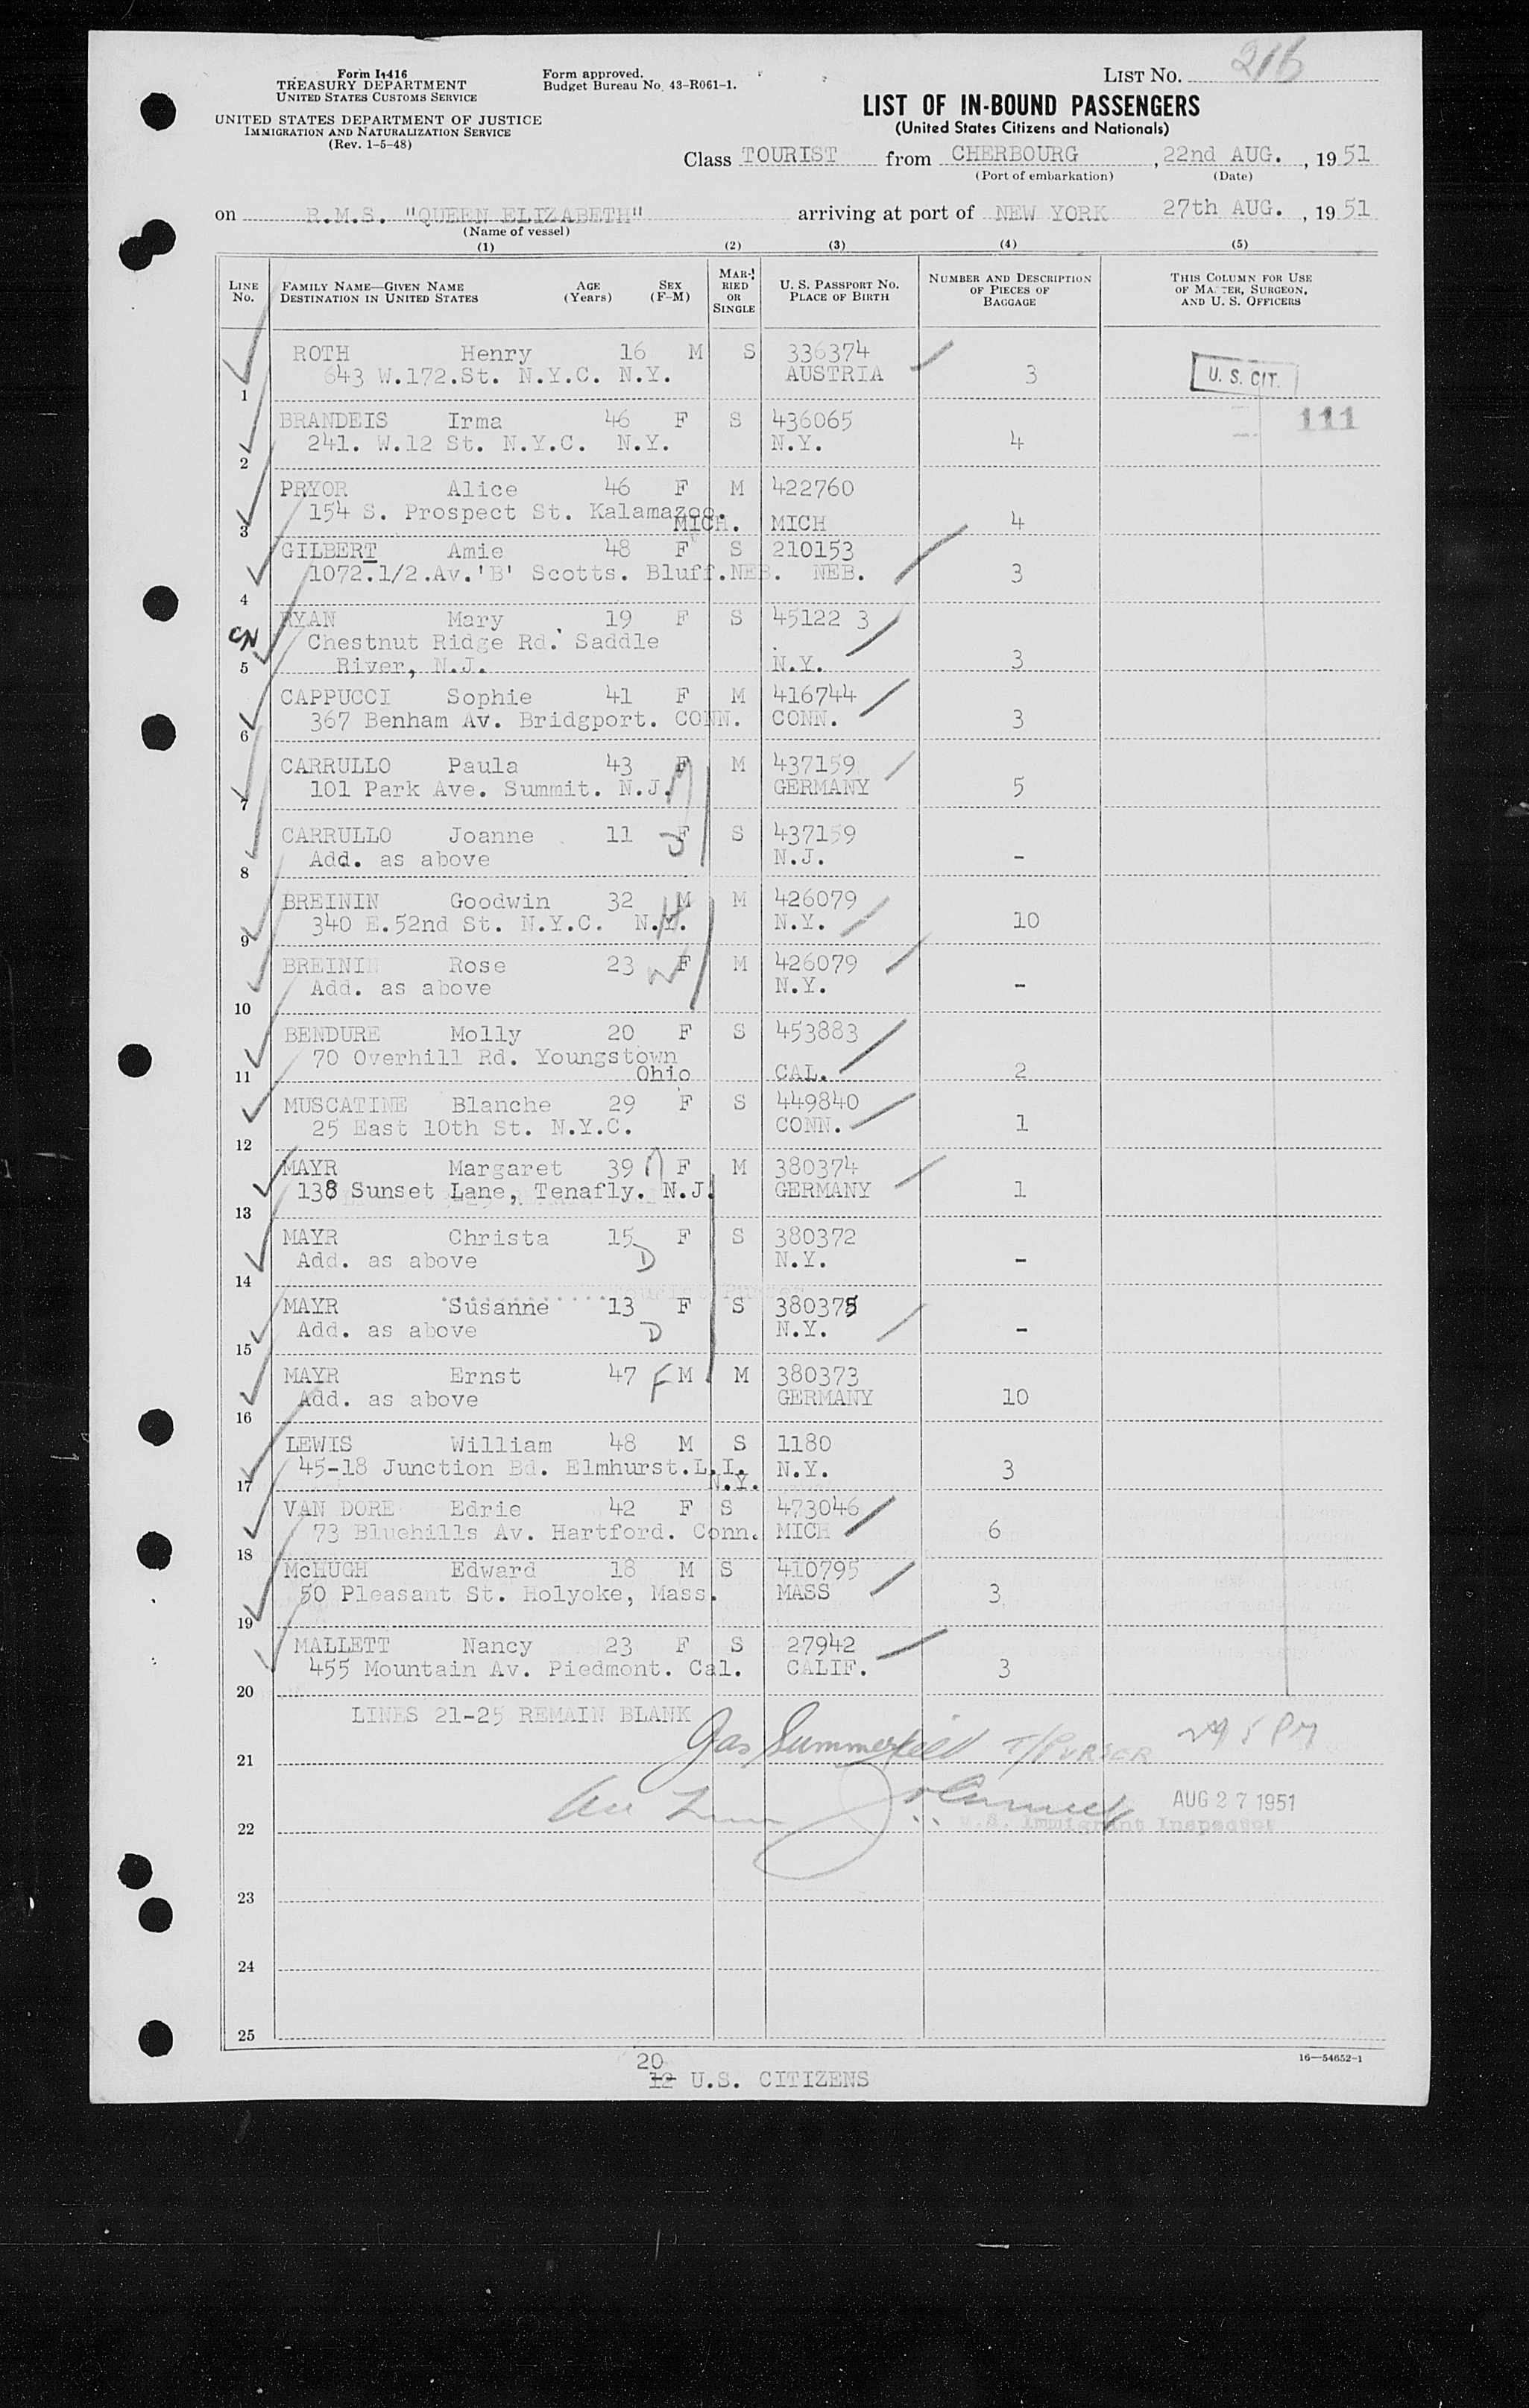 Form I-416
TREASURY DEPARTMENT
UNITED STATES CUSTOMS SERVICE
UNITED STATES DEPARTMENT OF JUSTICE
IMMIGRATION AND NATURALIZATION SERVICE
(Rev. 1-5-48)
Form approved.
Budget Bureau No. 43-R061-1.
LIST NO. 216
LIST OF IN-BOUND PASSENGERS
(United States Citizens and Nationals)
Class TOURIST from CHERBOURG, 22nd AUG., 1951
(Port of embarkation) (Date)
on R.M.S. "QUEEN ELIZABETH" arriving at port of NEW YORK 27th AUG., 1951
(Name of vessel)
(1) (2) (3) (4) (5)
LINE NO. FAMILY NAME—GIVEN NAME DESTINATION IN UNITED STATES AGE (Years) SEX (F-M) MARRIED OR SINGLE U. S. PASSPORT NO. PLACE OF BIRTH NUMBER AND DESCRIPTION OF PIECES OF BAGGAGE THIS COLUMN FOR USE OF MASTER, SURGEON, AND U. S. OFFICERS
ROTH Henry 16 M S 336374
1 643 W.172.St. N.Y.C. N.Y. AUSTRIA 3 U. S. CIT.
BRANDEIS Irma 46 F S 436065 111
2 241. W.12 St. N.Y.C. N.Y. N.Y. 4
PRYOR Alice 46 F M 422760
154 S. Prospect St. Kalamazoo.
3 MICH. MICH 4
GILBERT Amie 48 F S 210153
4 1072.1/2.Av.'B' Scotts. Bluff.NEB. NEB. 3
CN RYAN Mary 19 F S 45122 3
Chestnut Ridge Rd. Saddle
5 River, N.J. N.Y. 3
CAPPUCCI Sophie 41 F M 416744
6 367 Benham Av. Bridgport. CONN. CONN. 3
CARRULLO Paula 43 F M 437159
7 101 Park Ave. Summit. N.J. GERMANY 5
CARRULLO Joanne 11 F S 437159
8 Add. as above N.J. -
BREININ Goodwin 32 M M 426079
9 340 E.52nd St. N.Y.C. N.Y. N.Y. 10
BREININ Rose 23 F M 426079
10 Add. as above N.Y. -
BENDURE Molly 20 F S 453883
70 Overhill Rd. Youngstown
11 Ohio CAL. 2
MUSCATINE Blanche 29 F S 449840
12 25 East 10th St. N.Y.C. CONN. 1
MAYR Margaret 39 F M 380374
13 138 Sunset Lane, Tenafly. N.J. GERMANY 1
MAYR Christa 15 F S 380372
14 Add. as above D N.Y. -
MAYR Susanne 13 F S 380375
15 Add. as above D N.Y. -
MAYR Ernst 47 F M M 380373
16 Add. as above GERMANY 10
LEWIS William 48 M S 1180
17 45-18 Junction Bd. Elmhurst.L.I. N.Y. N.Y. 3
VAN DORE Edrie 42 F S 473046
18 73 Bluehills Av. Hartford. Conn. MICH 6
McHUGH Edward 18 M S 410795
19 50 Pleasant St. Holyoke, Mass. MASS 3
MALLETT Nancy 23 F S 27942
20 455 Mountain Av. Piedmont. Cal. CALIF. 3
LINES 21-25 REMAIN BLANK
21 Jas Summerfield T/PURSER
AUG 27 1951
22 U.S. Immigrant Inspector
23
24
25
16—54652-1
20
12 U.S. CITIZENS